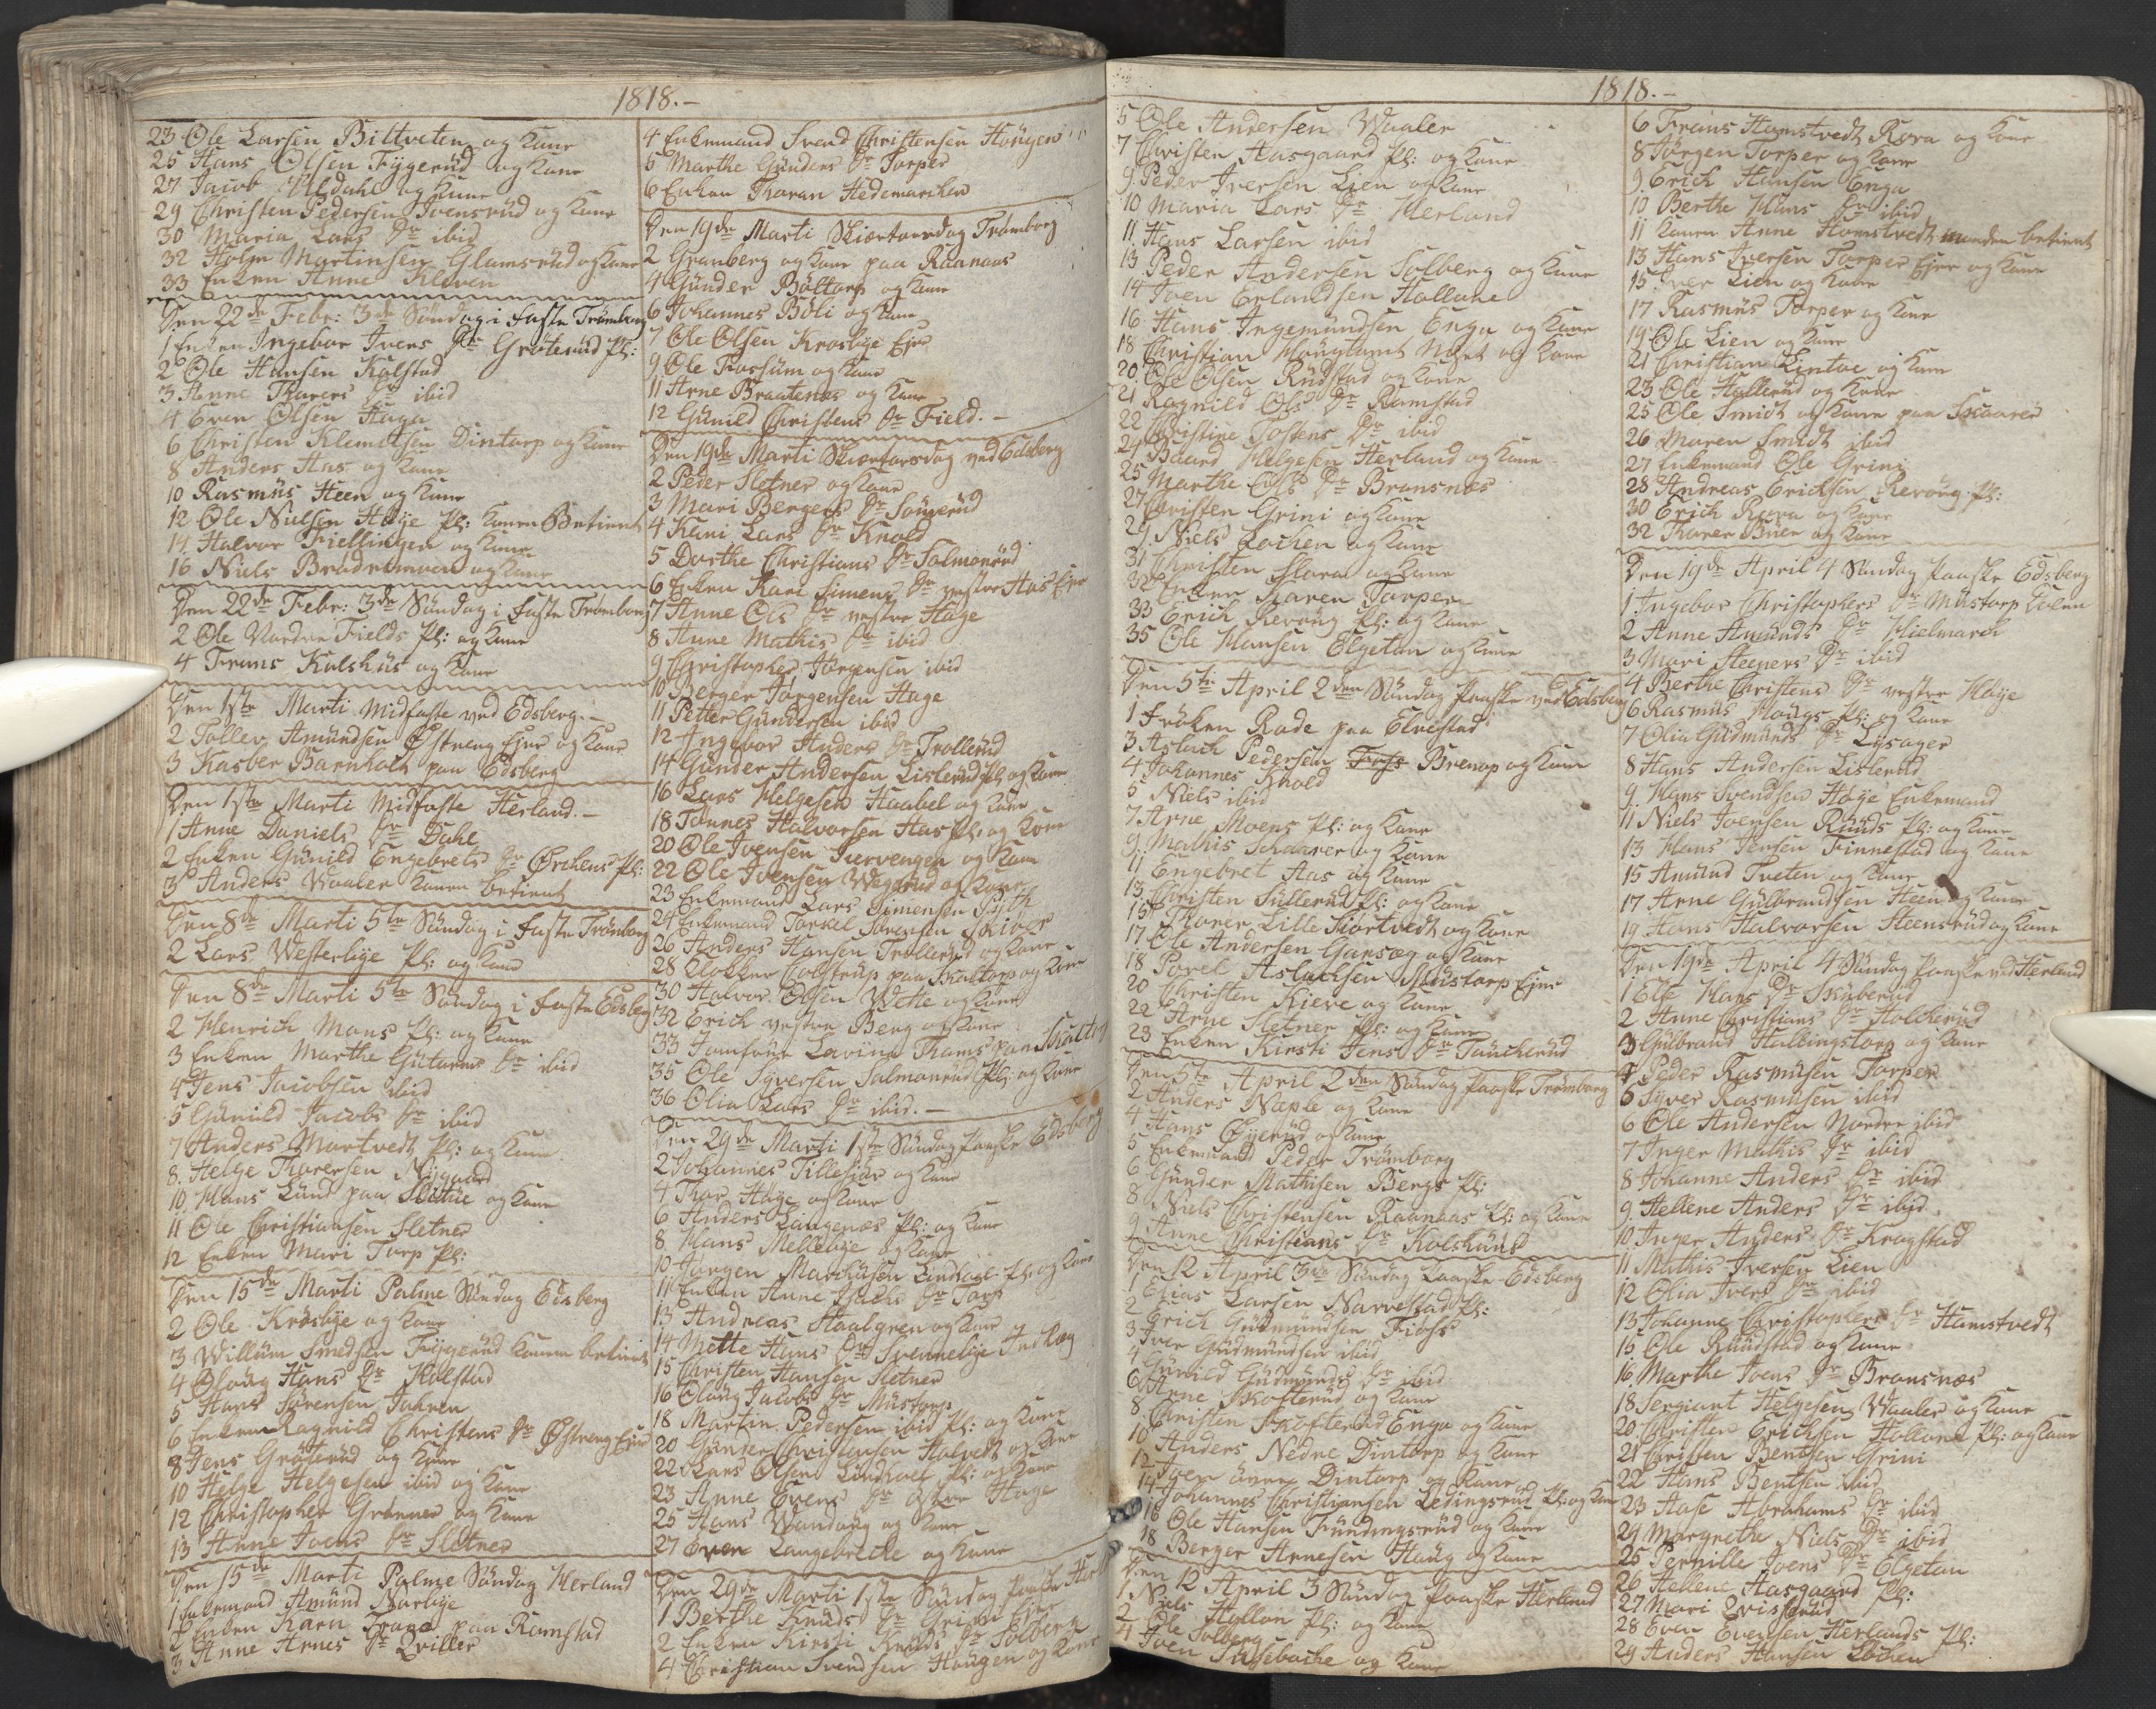 1818.-
23 Ole Larsen Biltveten og Kone
25 Hans Olsen Fygerud og Kone
27 Jacob Ulsdahl og Kone
29 Christen Pedersen Joensrud og Kone
30 Maria Lars Dr ibid
32 Holm Martinsen Glamsrud og Kone
33 Enken Anne Kleven
Den 22de Febr: 3de Søndag i Faste Trømborg
1 Enken Ingebor Ivers Dr Grøterud Pl:
2 Ole Hansen Kolstad
3 Anne Thorers Dr ibid
4 Even Olsen Haga
6 Christen Klemetsen Dintorp og Kone
8 Anders Aas og Kone
10 Rasmus Heen og Kone
12 Ole Nielsen Høye Pl: Konen Betient
14 Halvor Fiellingen og Kone
16 Niels og Kone
Den 22de Febr: 3de Søndag i Faste Trømborg
2 Ole Nordre Fields Pl: og Kone
4 Frans Kulshus og Kone
Den 1ste Marti Midfaste ved Edsberg.-
2 Tollev Amundsen Østreng Ejer og Kone
3 Kasber Barnholt paa Edsberg
Den 1ste Marti Midfaste Herland.-
1 Anne Daniels Dr Dahl
2 Enken Gunild Engebrets Dr Ørchens Pl:
3 Anders Waaler Konen betient
Den 8de Marti 5te Søndag i Faste Trømborg
2 Lars Westerlye Pl: og Kone
Den 8de Marti 5te Søndag i Faste Edsberg
2 Henrich Mons Pl: og Kone
3 Enken Marthe Dr ibid
4 Jens Jacobsen ibid
5 Gunild Jacobs Dr ibid
7 Anders Mortvedt Pl: og Kone
8. Helge Thorersen Nygaard
10 Hans Lund paa Slettue og Kone
11 Ole Christiansen Sletner
12 Enken Mari Torp Pl:
Den 15de Marti Palme Søndag Edsberg
2 Ole Krøslye og Kone
3 Willum Smedsen Fygerud Konen betient
4 Oloug Hans Dr Kolstad
5 Hans Sørensen Jahren
6 Enken Ragnild Christens Dr Østreng Ejer
8 Jens Grøterud og Kone
10 Helge Helgesen ibid og Kone
12 Christopher Grønner og Kone
13 Anne Joens Dr Sletner
Den 15de Marti Palme Søndag Herland
1 Enkemand Amund Norlye
2 Enken Karn Frans paa Ramstad
3 Anne Arnes Dr Qviller
4 Enkemand Svend Christensen Hougen
5 Marthe Gunders Dr Torper
6 Enken Thoran Hedemarcken
Den 19de Marti Skiertorsdag Trømborg
2 Granberg og Kone paa Raanaas
4 Gunder Bøltorp og Kone
6 Johannes Bøli og Kone
7 Ole Olsen Kroslye Ejer
9 Ole Fossum og Kone
11 Arne Braatenes og Kone
12 Gunild Christens Dr Field.-
Den 19de Marti Skiertorsdag ved Edsberg
2 Peder Sletner og Kone
3 Mari Bergers Dr
4 Kari Lars Dr Knold
5 Dorthe Christians Dr Salmonrud
6 Enken Kari Simens Dr vestre Aas Ejer
7 Anne Ols Dr vestre Hage
8 Anne Mathis Dr ibid
9 Christopher Jørgensen ibid
10 Berger Jørgensen Hage
11 Petter Gundersen ibid
12 Ingebor Anders Dr Trollerud
14 Gunder Andersen Lislerud Pl: og Kone
16 Lars Helgesen Haabel og Kone
18 Tønnes Halvorsen Aas Pl: og Kone
20 Ole Joensen Tiervengen og Kone
22 Ole Joensen Wegerud og Kone
23 Enkemand Lars Simensen Pyth
24 Enkemand Torkel Sørensen
26 Anders Hansen Trollerud og Kone
28 Klokker Colstrup paa Skaltorp og Kone
30 Halvor Olsen Wette og Kone
32 Erich vestre Berg og Kone
33 Jomfrue Lovine Thams paa
35 Ole Syversen Salmonrud Pl: og Kone
36 Olia Lars Dr ibid.-
Den 29de Marti 1ste Søndag Paaske Edsberg
2 Johannes Tillesiør og Kone
4 Thor Høye og Kone
6 Anders Langenæs Pl: og Kone
8 Hans Mellelye og Kone
10 Jørgen Marchusen Lindhol Pl: og Kone
11 Enken Anne Dr Torp
13 Andreas Staalgren og Kone
14 Mette Hans Dr Svennelye
15 Christen Hansen Sletner
16 Oloug Jacobs Dr Mustorp
18 Martin Pedersen ibid Pl: og Kone
20 Gunder Christensen Halvedt og Kone
22 Lars Olsen Lindhol Pl: og Kone
23 Anne Evens Dr østre Hage
25 Hans Wandoug og Kone
27 Even Langebrecke og Kone
Den 29de Marti 1ste Søndag Paaske
1 Berthe Knuds Dr
2 Enken Kirsti Knuds Dr Solberg
4 Christian Svendsen Hougen og Kone
1818.-
5 Ole Andersen Waaler
7 Christen Aasgaard Pl: og Kone
9. Peder Iversen Lien og Kone
10 Maria Lars Dr Herland
11. Hans Larsen ibid
13 Peder Andersen Solberg og Kone
14 Joen Erlandsen Hollene
16 Hans Ingemundsen Enga og Kone
18 Christian og Kone
20. Ole Olsen Rudstad og Kone
21 Ragnild Ols Dr Ramstad
22 Christine Tostens Dr ibid
24 Baard Helgesen Herland og Kone
25 Marthe Ols Dr Bransnæs
27 Christen Grini og Kone
29. Niels Lochen og Kone
31 Christen Slora og Kone
32 Enken Karen Torper
33 Erich Revoug Pl: og Kone
35 Ole Hansen Elgetun og Kone
Den 5te April 2den Søndag Paaske ved Edsberg
1 Frøken Rade paa Elvestad
3 Aslach Pedersen Brenop og Kone
4 Johannes Knold
5 Niels ibid
7 Arne Moens Pl: og Kone
9. Mathis Schaarer og Kone
11 Engebret Aas og Kone
13. Christen Sullerud Pl: og Kone
15 Thorer Lille Kiortvedt og Kone
17 Ole Andersen Gansog og Kone
18 Povel Aslachsen Mustorp Ejer
20 Christen Kieve og Kone
22 Arne Sletner Pl: og Kone
23 Enken Kirsti Jens Dr Taucherud
Den 5te April 2den Søndag Paaske Trømborg
2 Anders Næple og Kone
4 Hans Øyerud og Kone
5 Enkemand Peder Trømborg
6 Gunder Mathisen Bergs Pl:
8 Niels Christensen Raanaas Pl: og Kone
9 Anne Christians Dr Kolshuus
Den 12 April 3die Søndag Paaske Edsberg
1 Elias Larsen Narvestad Pl:
2 Erich Gudmundsen Fiøss
3 Iver Gudmundsen ibid
4 Gunild Gudmunds Dr ibid
6 Arne Skofterud og Kone
8. Christen Skofterud Enga og Kone
10 Anders Nedre Dintorp og Kone
12 Iver øvre Dintorp og Kone
14 Johannes Christiansen Ledingsrud Pl: og Kone
16 Ole Hansen Fundingsrud og Kone
18 Berger Arnesen Haug og Kone
Den 12 April 3 Søndag Paaske Herland
1. Niels Hyllen Pl: og Kone
2 Ole Solberg
4 Joen Susebacke og Kone
6 Frans Hamstvedt Rova og Kone
8 Jørgen Torper og Kone
9. Erich Hansen Enga
10 Berthe Hans Dr ibid
11 Konen Anne Homstvedt manden betient
13 Hans Iversen Torper Ejer og Kone
15. Iver Lien og Kone
17 Rasmus Torper og Kone
19 Ole Lien og Kone
21 Christian Lintoe og Kone
23 Ole Hallerud og Kone
25 Ole Smidt og Kone paa Skaarer
26 Maren Smidt ibid
27 Enkemand Ole Grini
28 Andreas Ericksen Revoug Pl:
30 Erich Rova og Kone
32 Thorer Buer og Kone
Den 19de April 4 Søndag Paaske Edsberg
1 Ingebor Christophers Dr Mustorp Eien
2 Anne Amunds Dr Hielmarck
3 Mari Steeners Dr ibid
4 Berthe Christens Dr vestre Høye
6 Rasmus Hougs Pl: og Kone
7 Olia Gudmunds Dr Lysager
8 Hans Andersen Lislerud
9. Hans Svendsen Høye Enkemand
11 Niels Joensen Ruuds Pl: og Kone
13 Hans Jensen Finnestad og Kone
15 Amund Tveten og Kone
17 Arne Gulbrandsen Heen og Kone
19 Hans Halvorsen Steensrud og Kone
Den 19de April 4 Søndag Paaske ved Herland
1 Else Hans Dr Skuberud
2 Anne Christians Dr Holckerud
3 Gulbrand Halbingstorp og Kone
4 Peder Rasmusen Torper
5 Syver Rasmusen ibid
6 Ole Andersen Nordre ibid
7 Inger Mathis Dr ibid
8 Johanne Anders Dr ibid
9. Hellene Anders Dr ibid
10 Inger Anders Dr Kragstad
11 Mathis Iversen Lien
12 Olia Ivers Dr ibid
13 Johanne Christophers Dr Hamstvedt
15 Ole Ruudstad og Kone
16 Marthe Joens Dr Bransnæs
18 Sergiant Helgesen Waaler og Kone
20 Christen Ericksen Hollene Pl: og Kone
21 Christen Bentsen Grini
22 Hans Bentsen ibid
23 Aase Abrahams Dr ibid
24 Margrethe Niels Dr ibid
25 Pernille Joens Dr Elgetun
26 Hellene Aasgaard Pl:
27 Mari Qvisserud
28 Even Evensen Herlands Pl:
29 Anders Hansen Lochen